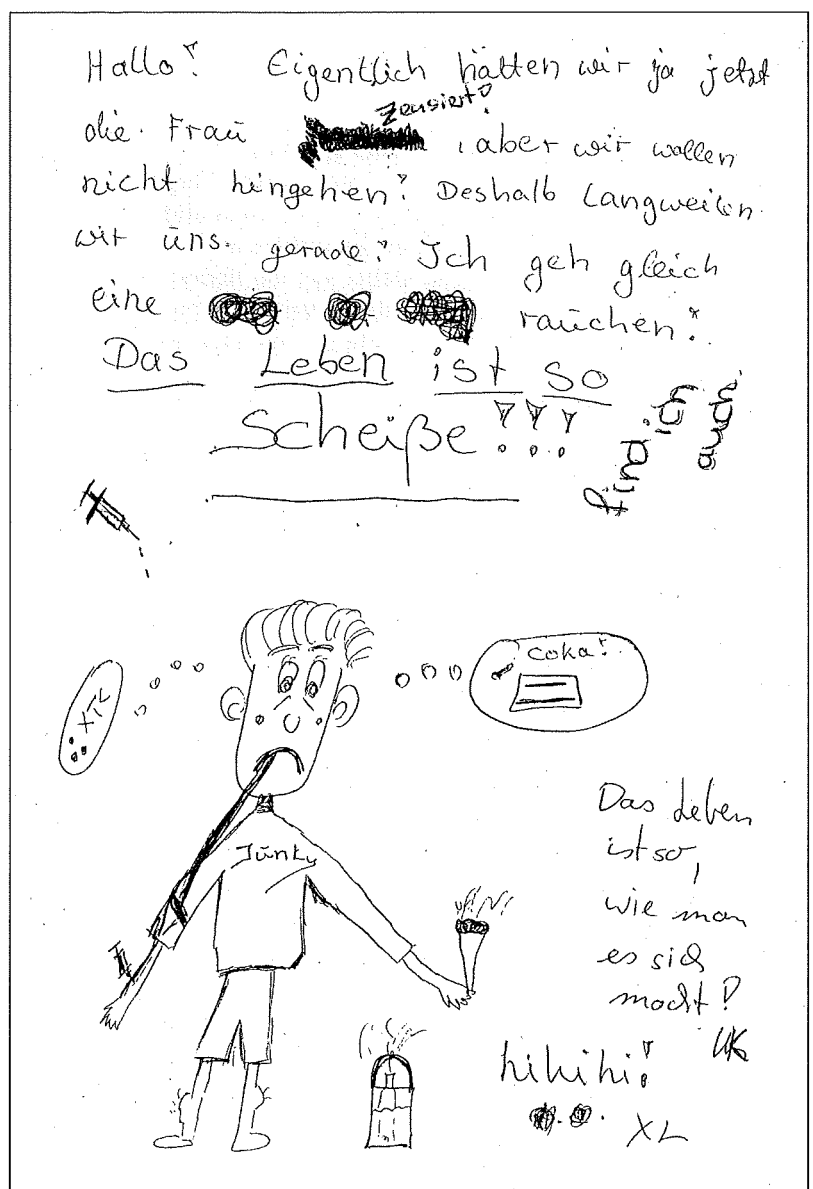 Hallo! Eigentlich hätten wir ja jetzt
Zensiert!
die Frau , aber wir wollen
nicht hingehen! Deshalb langweilen
wir uns gerade! Ich geh gleich
eine rauchen!
Das Leben ist so
Scheiße!!!
find ich
auch.
XTC
Coka!
Junky
Das Leben
ist so,
wie man
es sich
macht!
hihihi!
XL